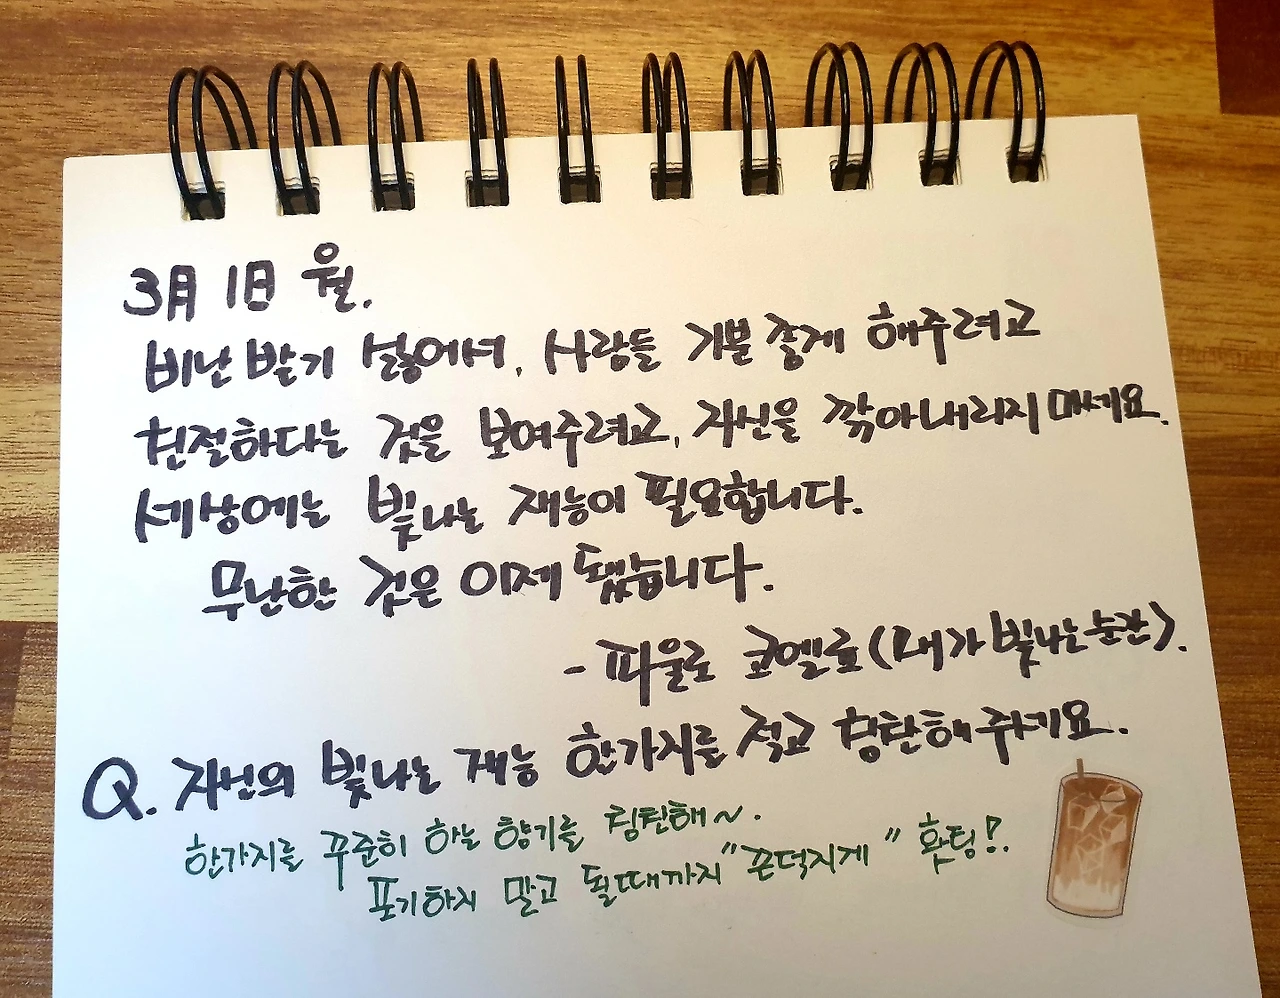 3月 1日 월.
비난 받기 싫어서, 사람들 기분 좋게 해주려고
친절하다는 것을 보여주려고, 자신을 깎아내리지 마세요.
세상에는 빛나는 재능이 필요합니다.
무난한 것은 이제 됐습니다.
- 파울로 코엘료(내가 빛나는 순간).
Q. 자신의 빛나는 재능 한가지를 적고 칭찬해 주기요.
한가지를 꾸준히 하는 향기를 칭찬해~.
포기하지 말고 될때까지 "끈덕지게" 홧팅!!